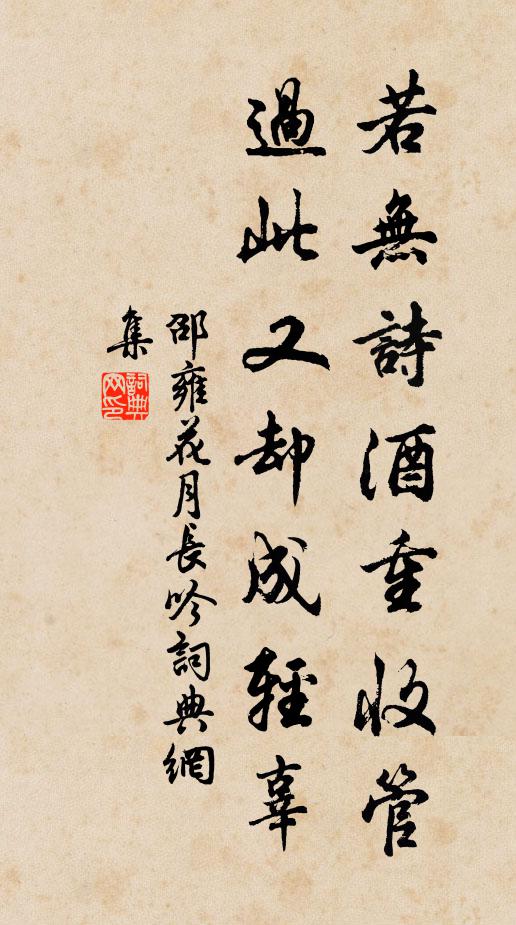 若無詩酒重收管
過此又却成輕辜
邵雍花月長吟詞典網
集
詞典
網印